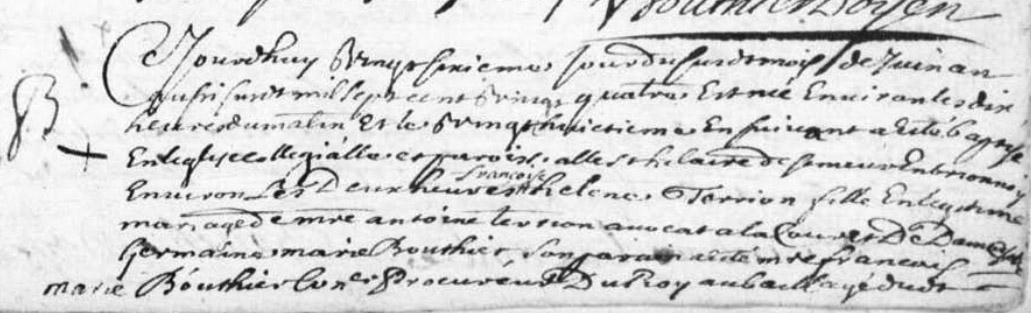 Bouthier Doyen
B
Jourdhuy vingt sixieme jour du susdt mois de Juin an
susdt mil sept cent vingt quatre Est née Environ les dix
heures du matin Et le vingt huictieme En suivant a été baptisé
En leglise collegialle et paroissialle st hilaire de semeur En brionnois
Environ les Deux heures françoise helene Terrion fille En legitime
mariage de mre antoine terrion avocat a la Cour et De Dame
Germaine marie Bouthier, son parain a été mre francois
marie Bouthier Con.er Procureur Du Roy au baillage dudt